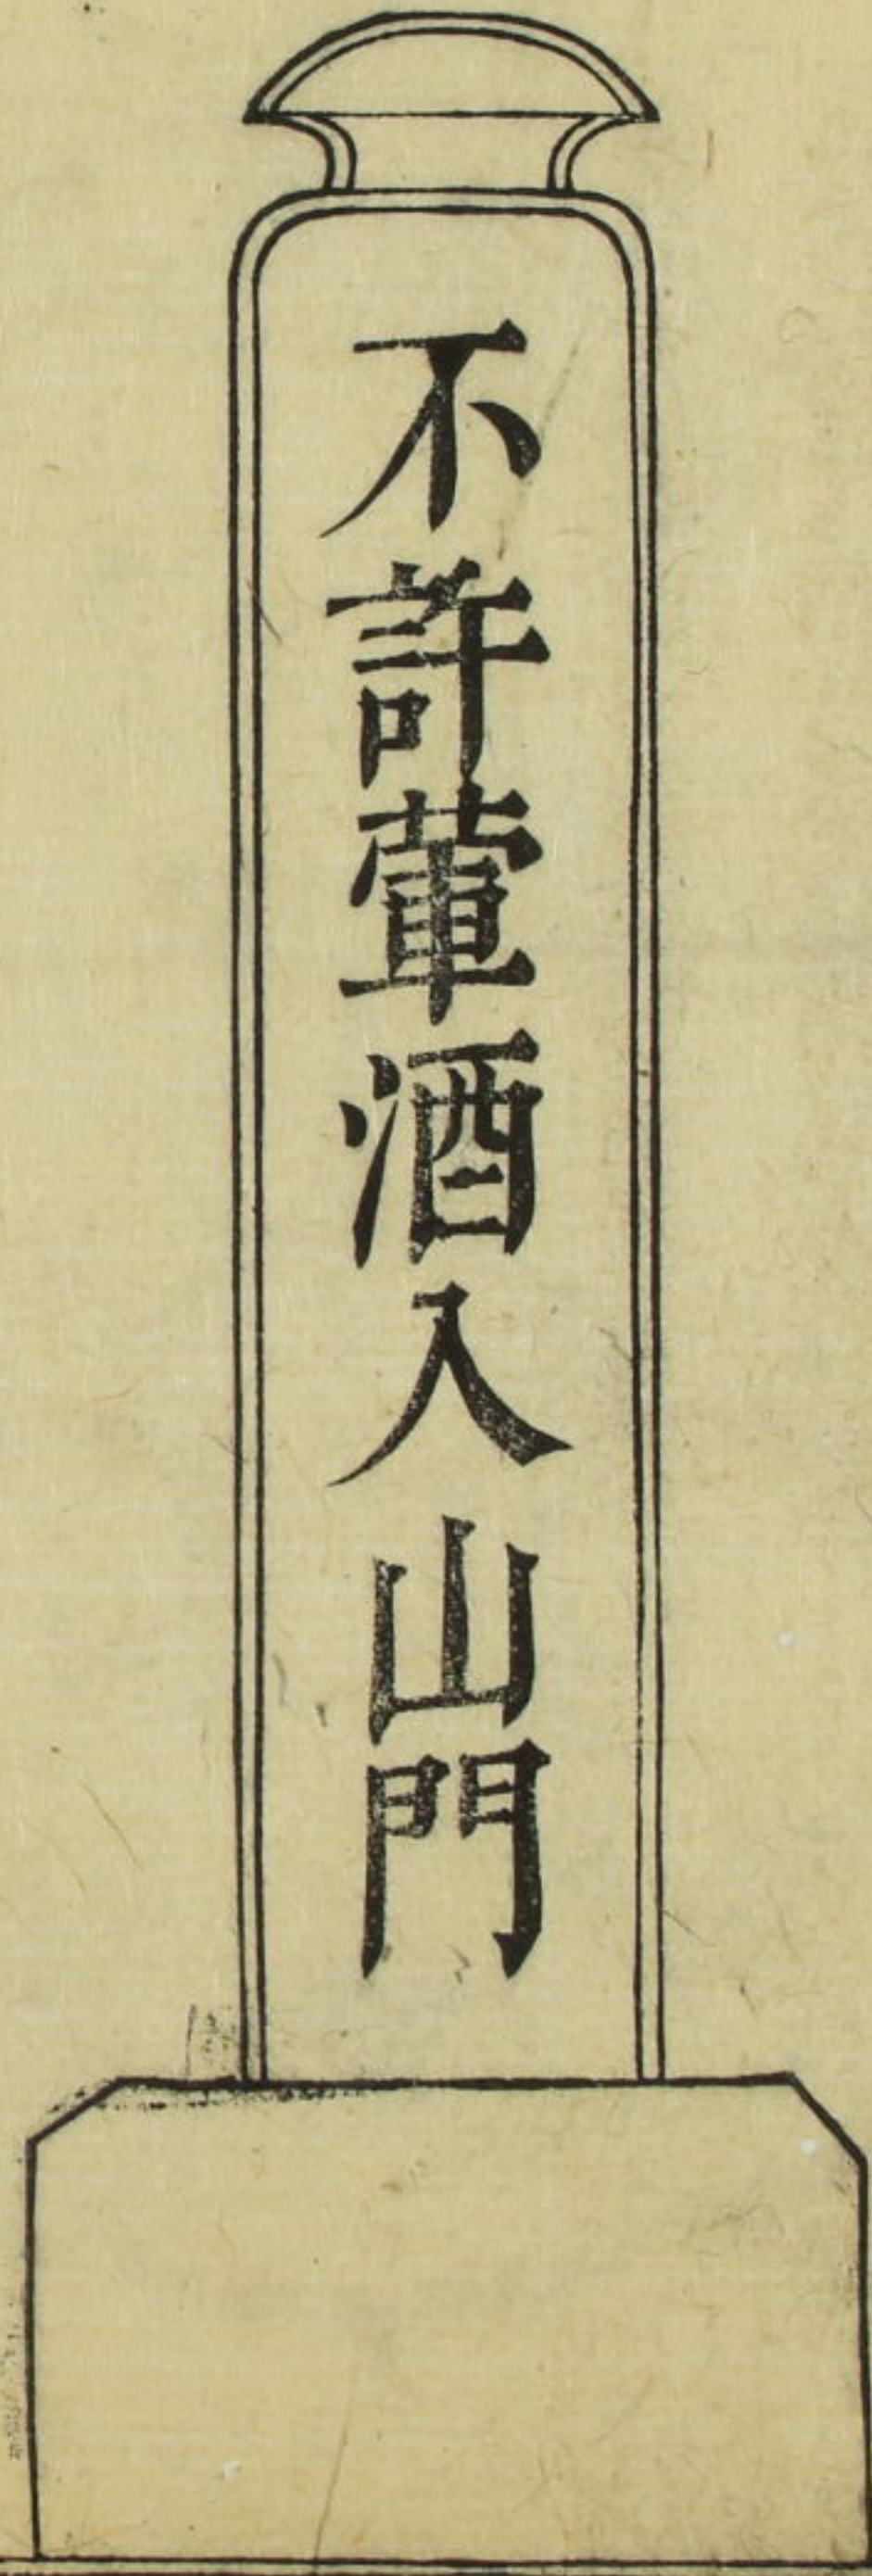 不許葷酒入山門